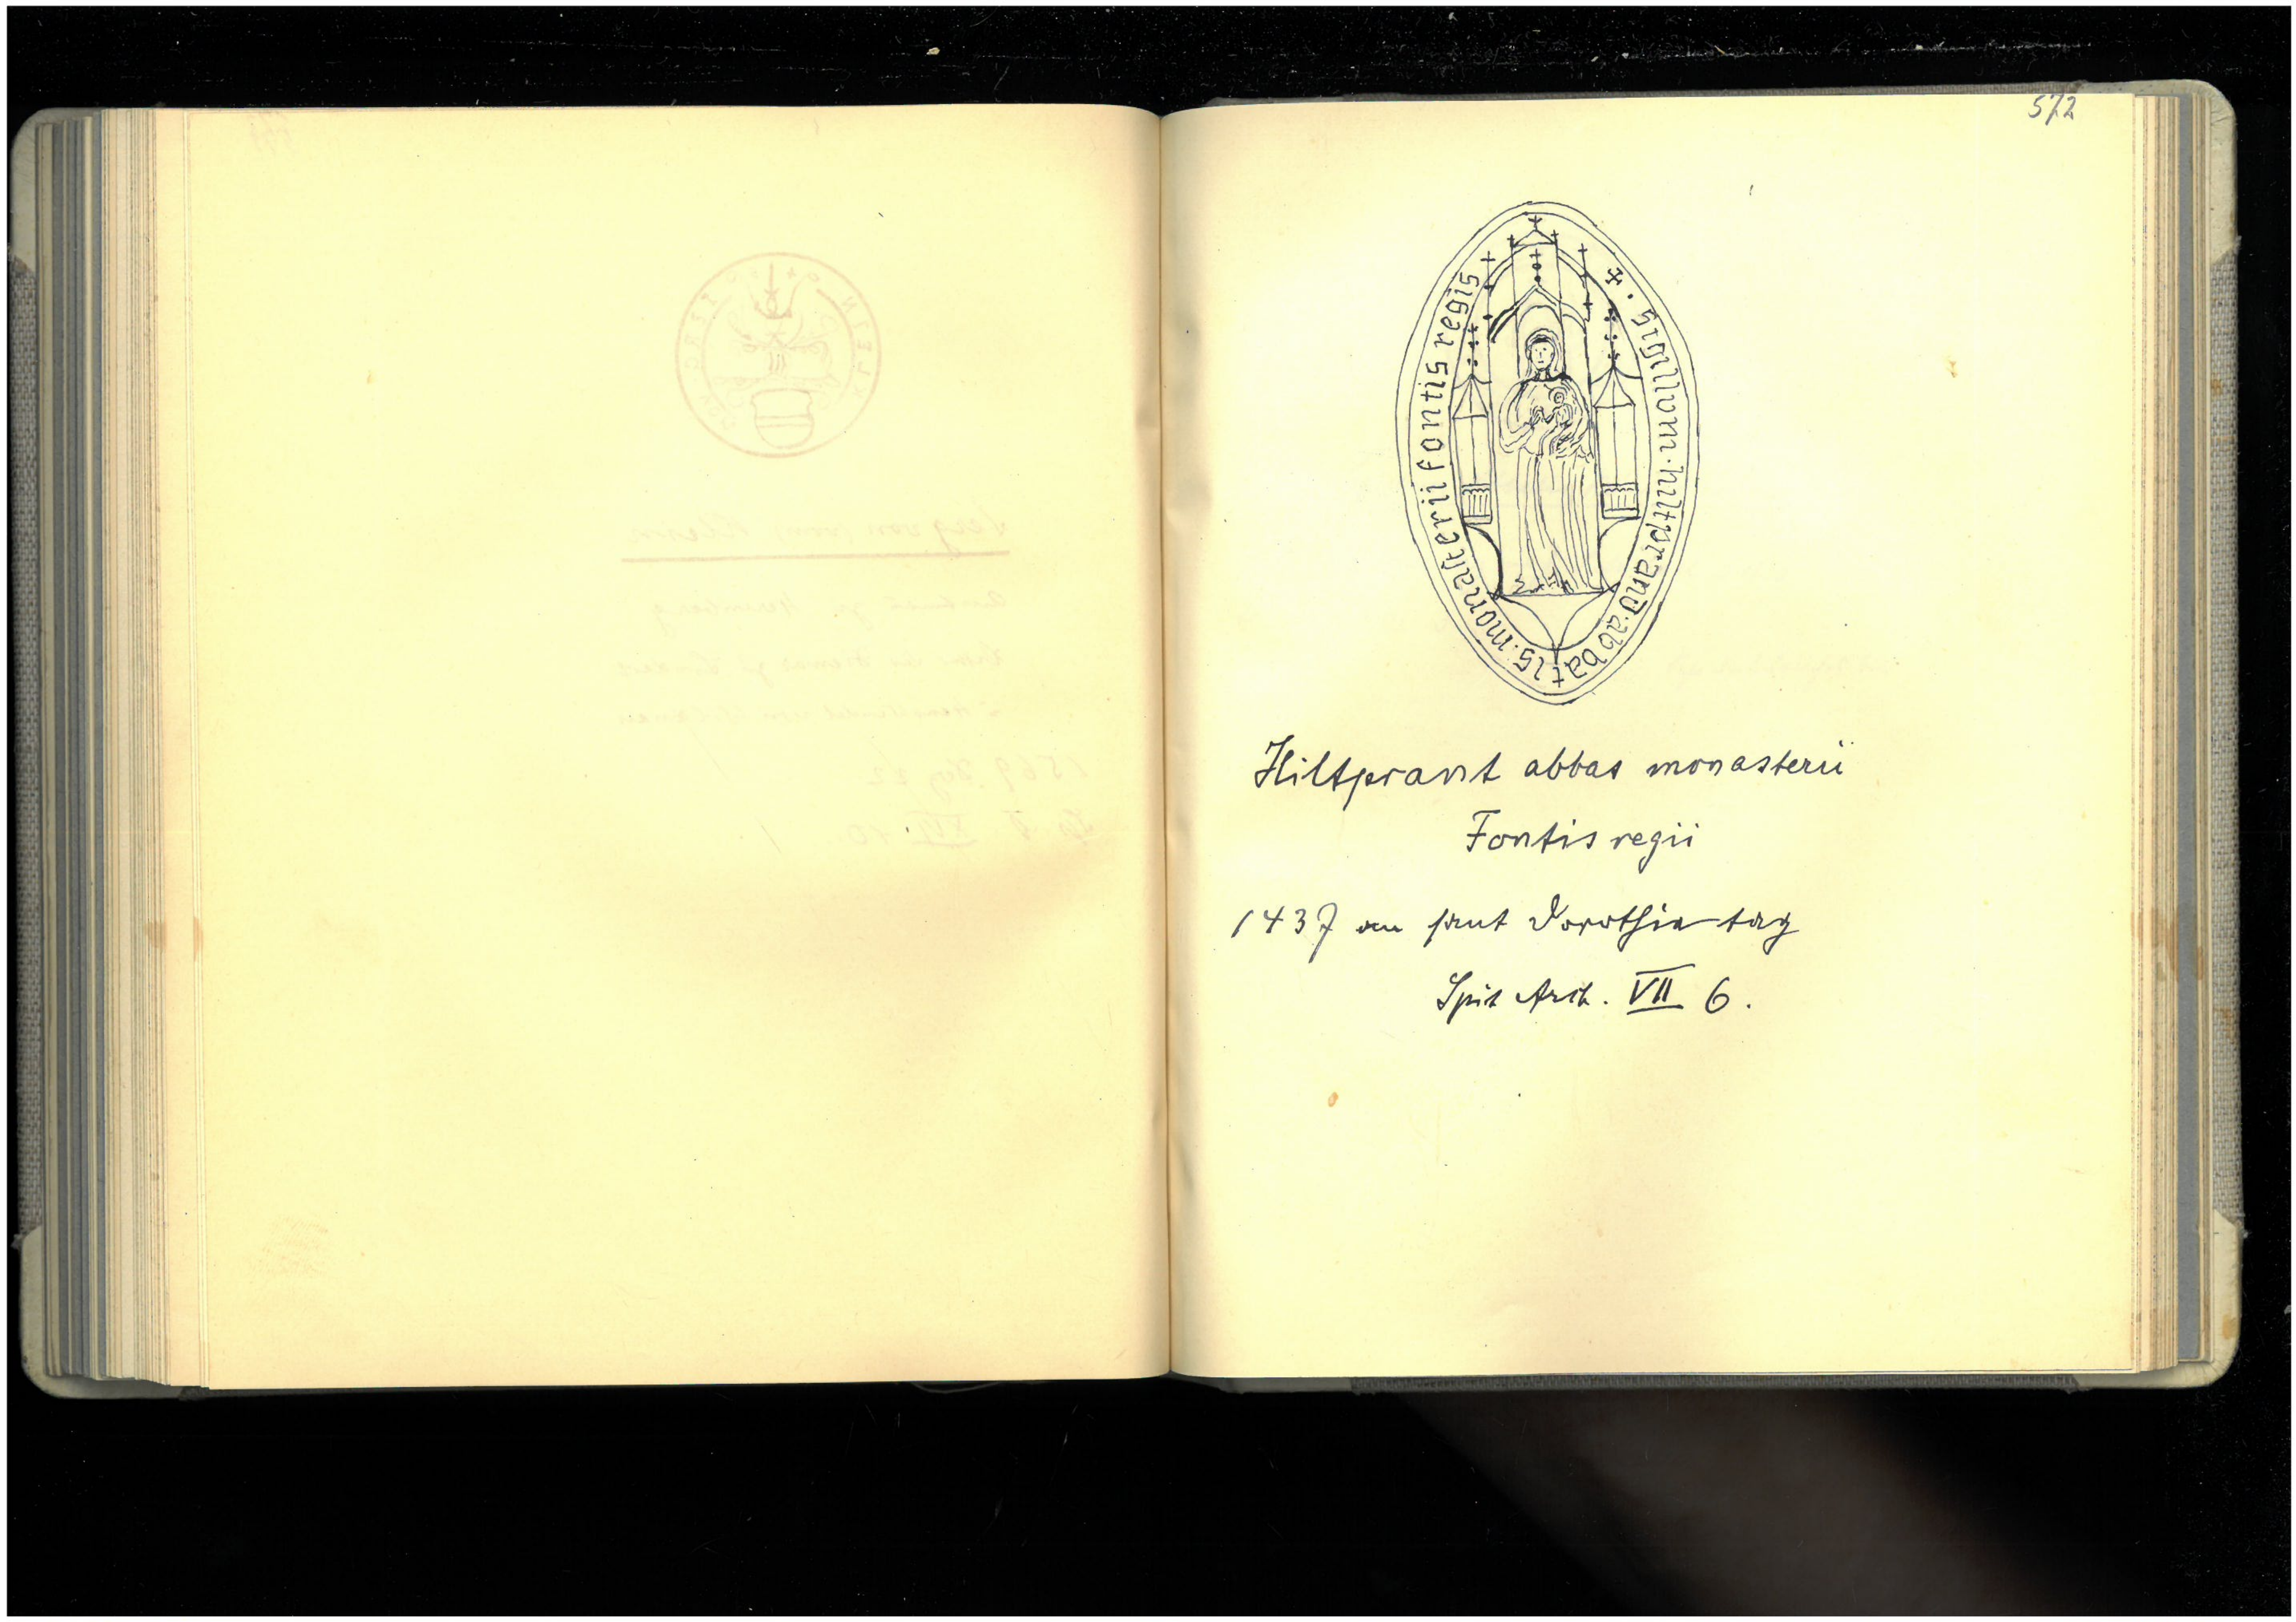 572
✠ · sigillum · hiltprand · abbatis · monasterii fontis regis
Hiltprant abbas monasterii
Fontis regii
1437 an sant Dorothia tag
Spit Arch. VII 6.